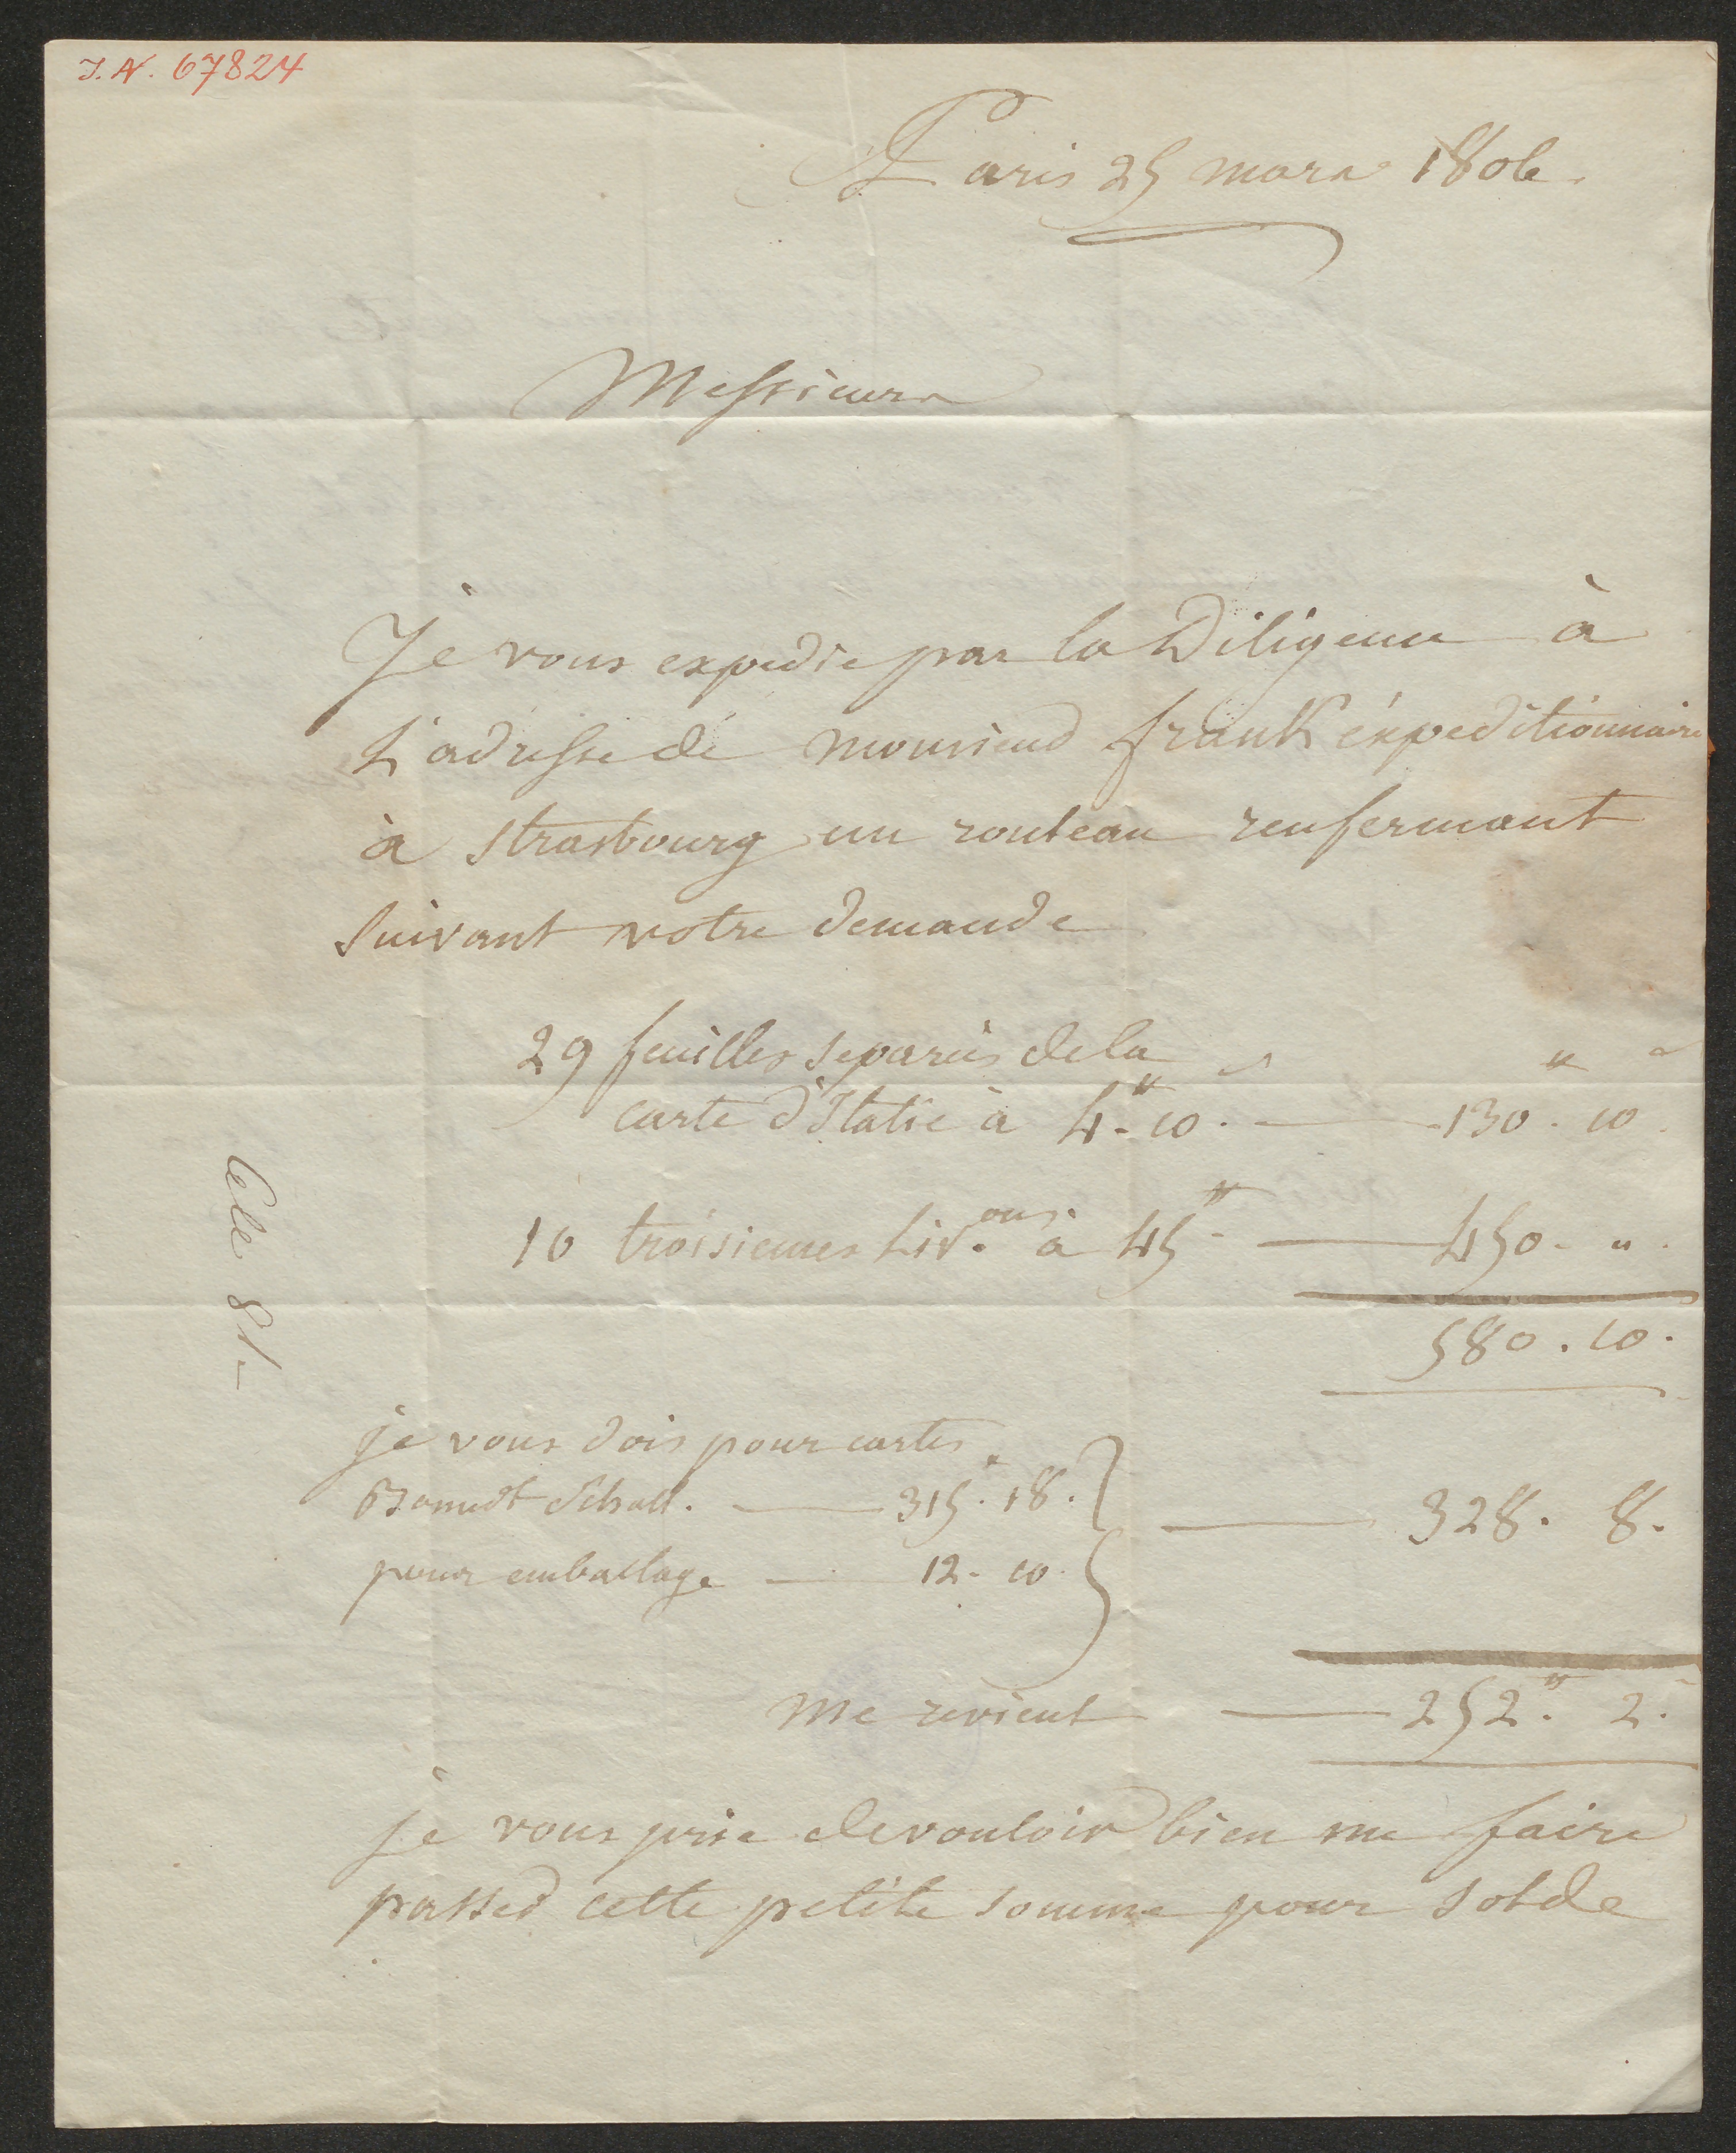 J.N. 67824
Paris 25 mars 1806.
Messieurs
Je vous expedie par la Diligence à
L'adresse de monsieur frank éxpeditionnaire
à Strasbourg un rouleau renfermant
Suivant votre demande
29 feuilles separées de la
carte d'Italie à 4.# 10. — 130.# 10.
10 troisiemes Liv.ons à 45# — 450. "
580. 10.
je vous dois pour cartes
— 315.# 18.
328. 8.
pour emballage — 12. 10.
me revient — 252.# 2.
je vous prie de vouloir bien me faire
passer cette petite somme pour solde